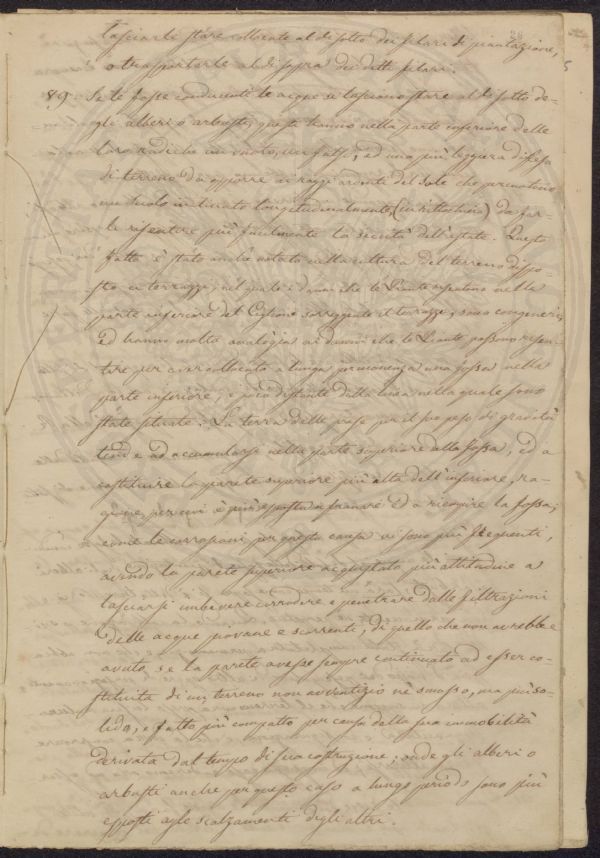 lasciarli stare collocate al di sotto dei filari di piantazione,
o trasportarle al di sopra dei detti filari.
89 Se le fosse conducenti le acque si lasciono stare al di sotto de-
gli alberi o arbusti, questi hanno nella parte inferiore delle
loro radiche un vuoto, ed una più leggera difesa
di terreno da opporre ai raggi ardenti del Sole che premettono
un suolo inclinato longitudinalmente, da far-
le risentire più facilmente la siccità dell'estate. Questo
fatto è stato anche notato nella cultura del terreno dispo-
sto a terrazzi, nel quale i danni che le Piante risentono nella
parte inferiore del Ciglione sorreggente il terrazzo, sono congeneri,
ed hanno molta analogia ai danni che le Piante possono risen-
tire per aver collocato a lunga permanenza una fossa nella
parte inferiore, e poco distante dalla linea nella quale sono
state situate. La terra delle prese per il suo peso di gravità
tende ad accumularsi nella parte superiore alla fossa, ed a
costituire la parete superiore più alta dell'inferiore, ra-
gione per cui è più esposta a franare ed a riempire la fossa;
come le corrosioni per questa causa vi sono più frequenti,
avendo la parete superiore acquistato più attitudine a
lasciarsi imbevere corrodere e penetrare dalle filtrazioni
delle acque piovane e scorrenti, di quello che non avrebbe
avuto, se la parete avesse sempre continuato ad esser co-
stituita di un terreno non avventizio nè smosso, ma più so-
lido, e fatto più compatto per causa della sua immobilità
derivata dal tempo di sua costruzione; onde gli alberi o
arbusti anche per questo caso a lungo periodo sono più
esposti agli scalzamenti degli altri.